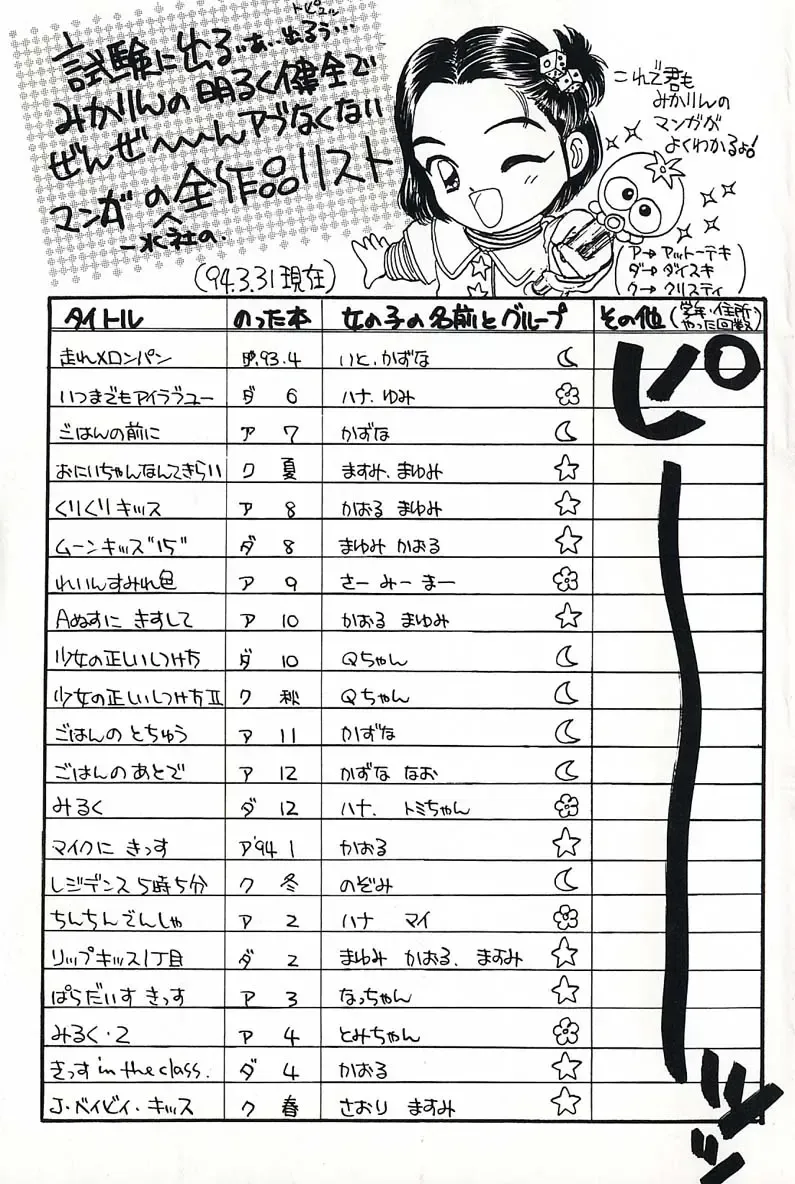 トピュル
試験に出る〃あ…出るぅ…
みかりんの明るく健全で
ぜんぜ〜〜んアブなくない
マンガの全作品リスト
一水社の.
(94.3.31現在)
これで君も
みかりんの
マンガが
よくわかるよ!
ア→アットーテキ
ダ→ダイスキ
ク→クリスティ
タイトル のった本 女の子の名前とグループ その他(学年・住所・やった回数)
走れメロンパン '93.4 いと.かずな ☾
いつまでもアイラブユー ダ 6 ハナ.ゆみ
ごはんの前に ア 7 かずな ☾
おにいちゃんなんてきらい ク 夏 ますみ.まゆみ ☆
くりくりキッス ア 8 かおる まゆみ ☆
ムーンキッス"15" ダ 8 まゆみ かおる ☆
れいんすみれ色 ア 9 さー みー まー
Aぬすに きすして ア 10 かおる まゆみ ☆
少女の正しいしつけ方 ダ 10 Qちゃん ☾
少女の正しいしつけ方Ⅱ ク 秋 Qちゃん ☾
ごはんの とちゅう ア 11 かずな ☾
ごはんのあとで ア 12 かずな なお ☾
みるく ダ 12 ハナ. トミちゃん
マイクに きっす ア'94 1 かおる ☆
レジデンス5時5分 ク 冬 のぞみ ☾
ちんちんでんしゃ ア 2 ハナ マイ
リップキッス1丁目 ダ 2 まゆみ かおる. ますみ ☆
ぱらだいす きっす ア 3 なっちゃん ☆
みるく・2 ア 4 とみちゃん
きっす in the class. ダ 4 かおる ☆
J・ベイビィ・キッス ク 春 さおり ますみ ☆
ピーッッ